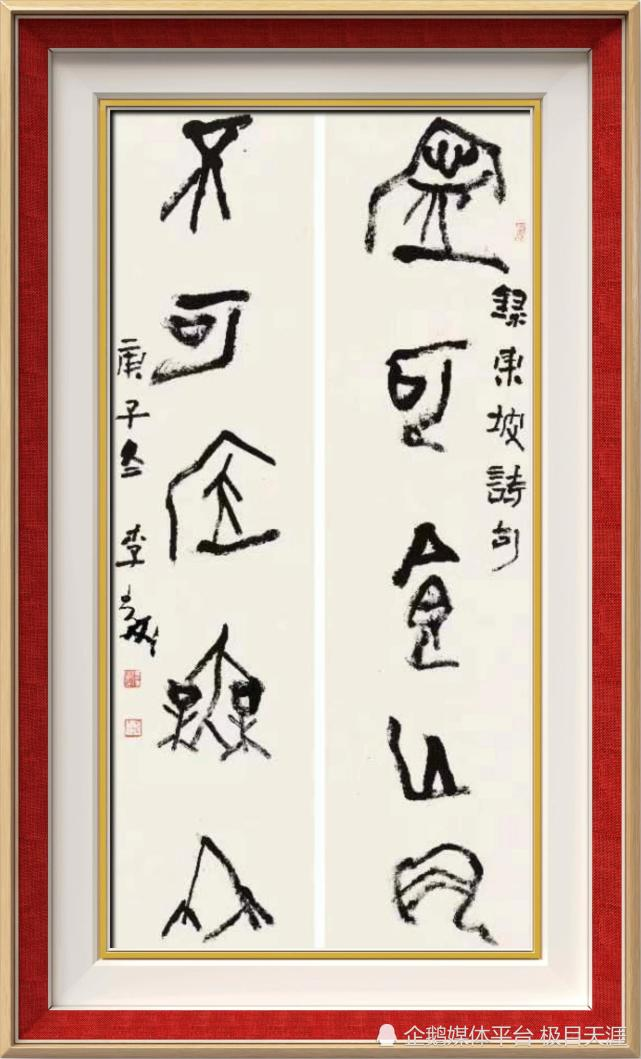 錄東坡詩句
寧可食亡肉
不可無竹
庚子冬 李
企鹅媒体平台 极目天涯